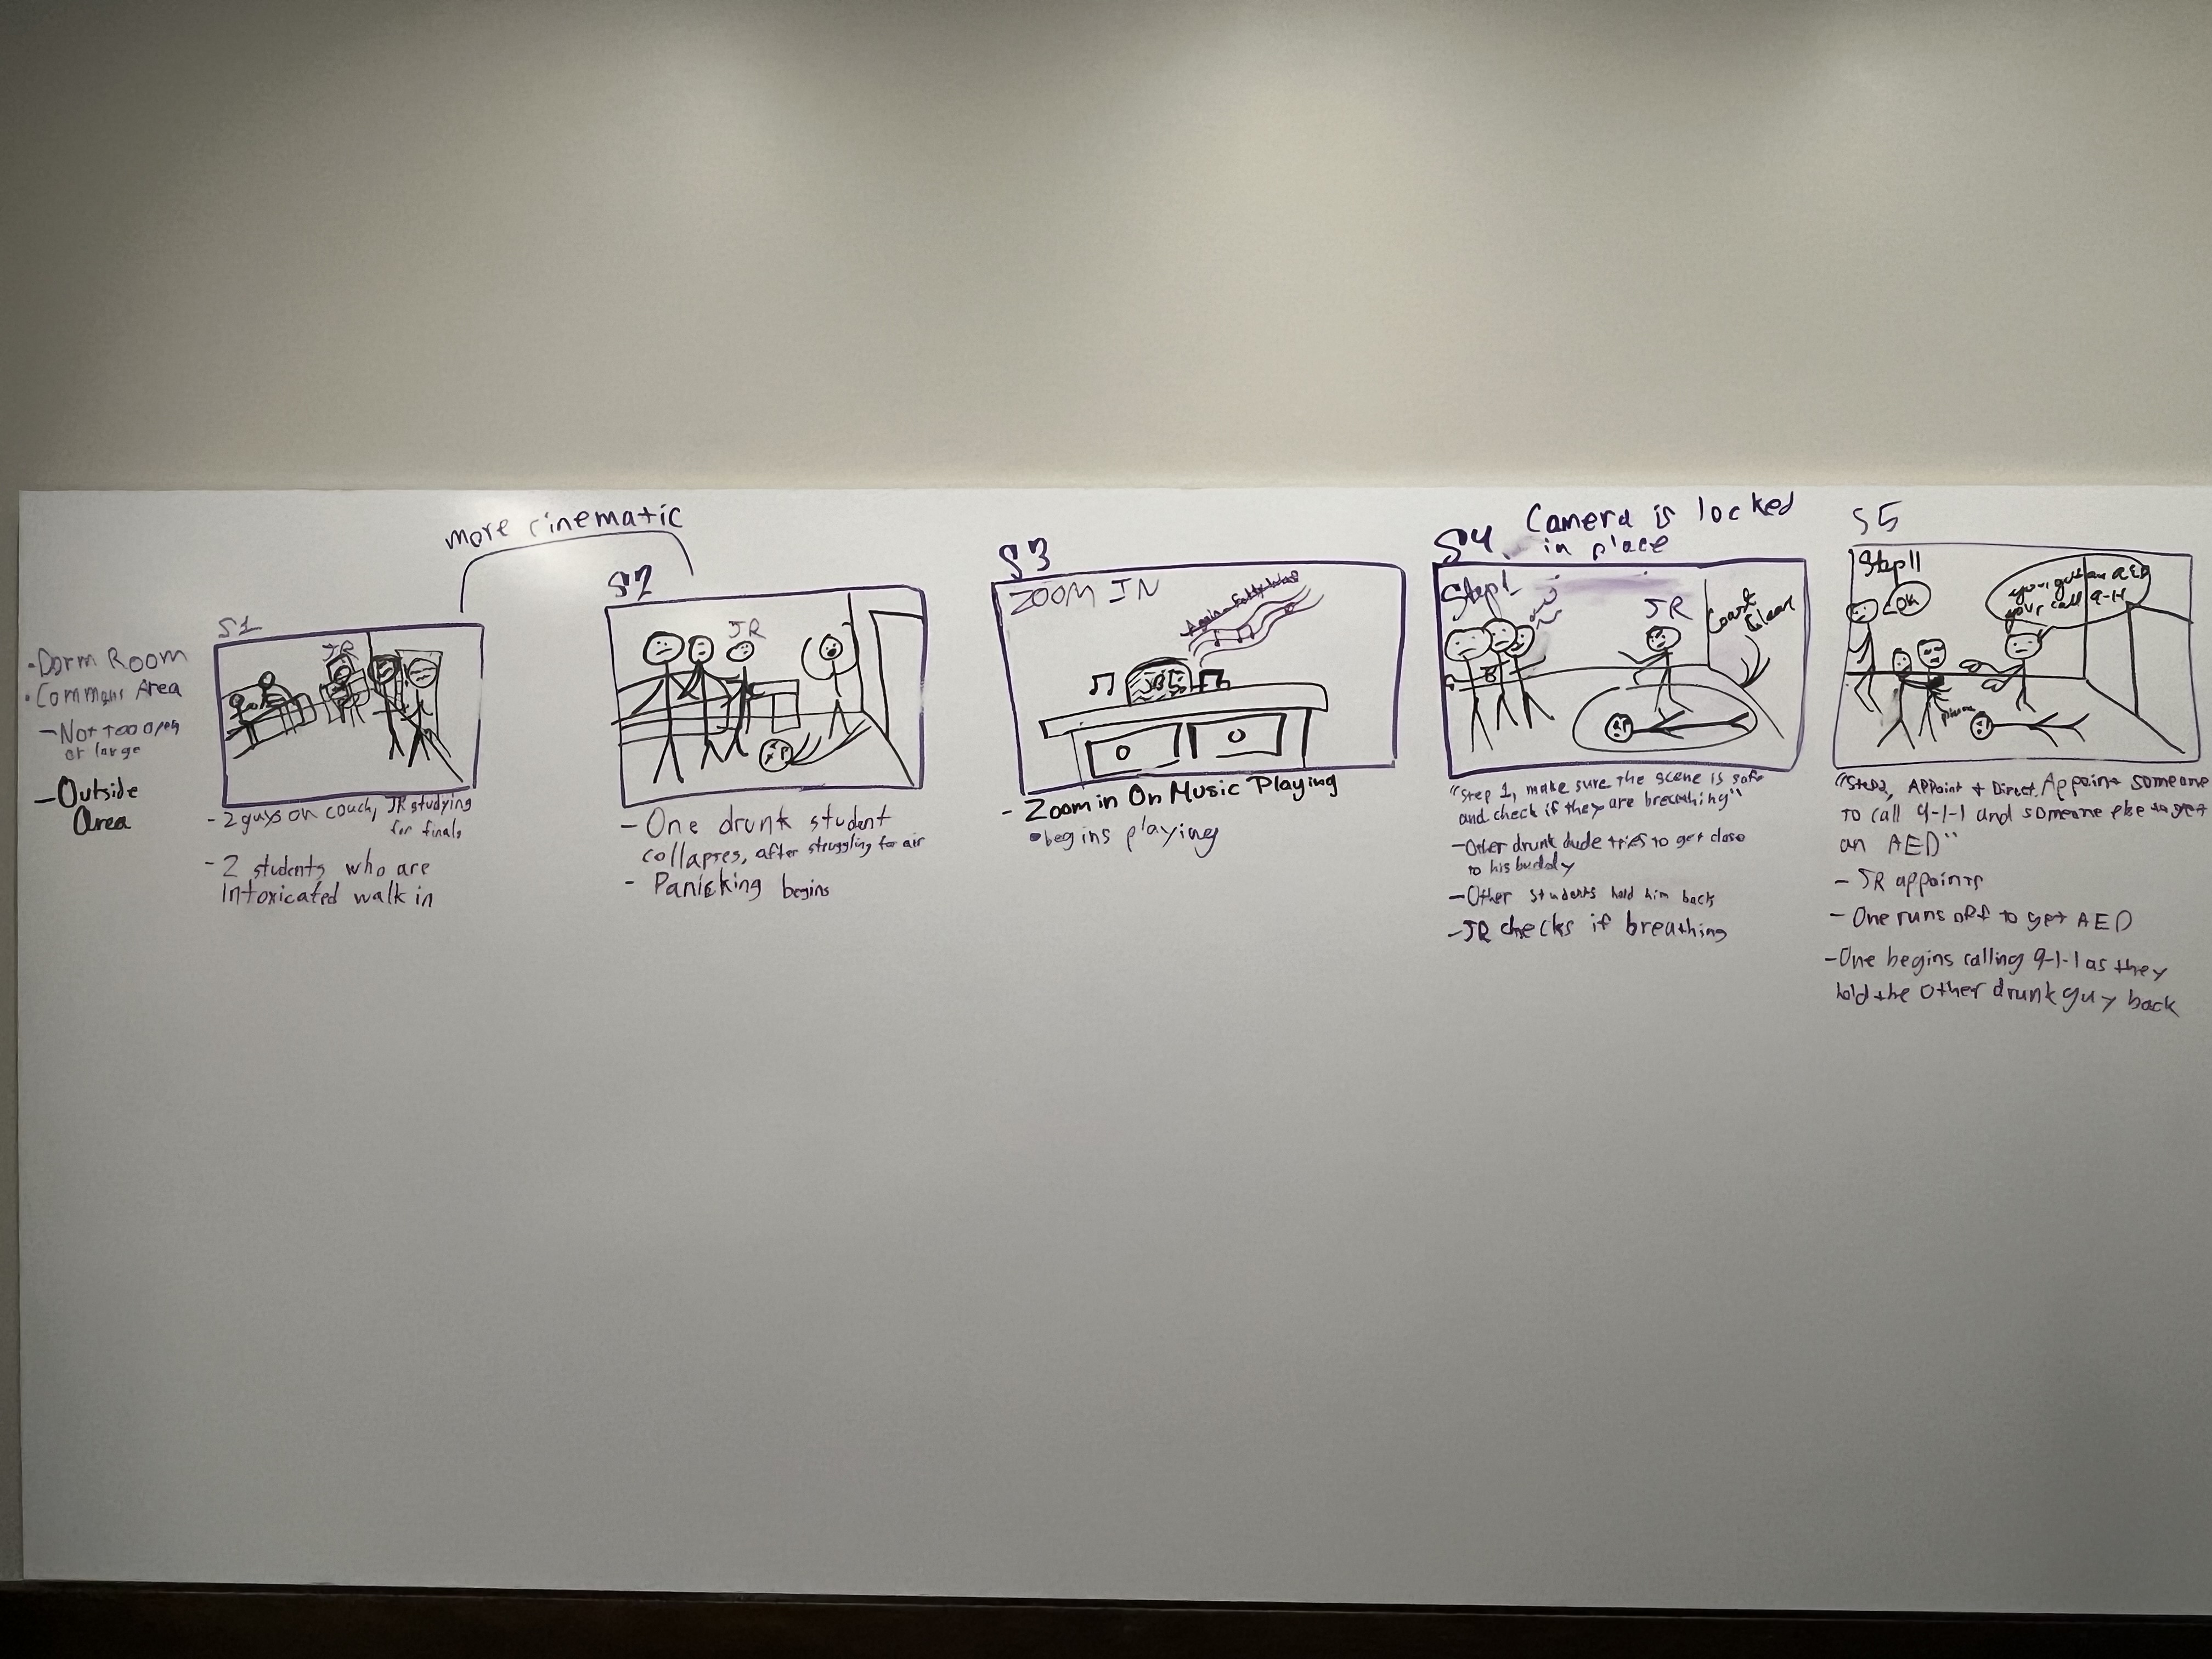 more cinematic
- Dorm Room
• Commons Area
- Not too open
or large
- Outside
Area
S1
JR
- 2 guys on couch, JR studying
for finals
- 2 students who are
Intoxicated walk in
S2
JR
- One drunk student
collapses, after struggling for air
- Panicking begins
S3
ZOOM IN
- Zoom in On Music Playing
• begins playing
S4
Camera is locked
in place
Step 1
JR
Coast
Clear
"Step 1, make sure the scene is safe
and check if they are breathing"
- Other drunk dude tries to get close
to his buddy
- Other students hold him back
- JR checks if breathing
S5
Step 11
OK
your get an AED
your call 9-11
phone
"Step 2, APPoint + Direct, Appoint someone
to call 9-1-1 and someone else to get
an AED"
- JR appoints
- One runs off to get AED
- One begins calling 9-1-1 as they
hold the other drunk guy back